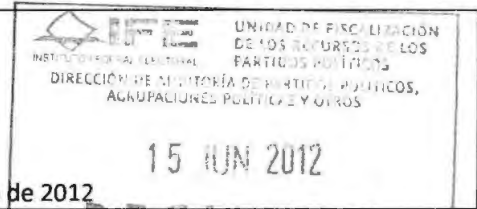 IFE
INSTITUTO FEDERAL ELECTORAL
UNIDAD DE FISCALIZACIÓN
DE LOS RECURSOS DE LOS
PARTIDOS POLÍTICOS
DIRECCIÓN DE AUDITORÍA DE PARTIDOS POLÍTICOS,
AGRUPACIONES POLÍTICAS Y OTROS
15 JUN 2012
de 2012